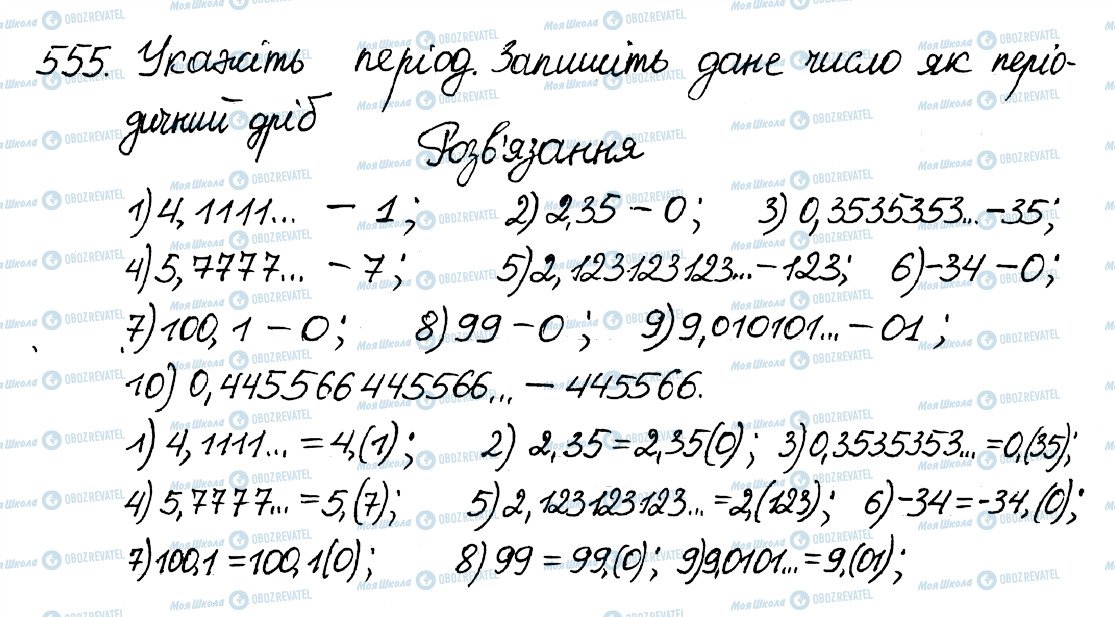 555. Укажіть період. Запишіть дане число як періо-
дичний дріб
Розв'язання
1) 4,1111... – 1; 2) 2,35 – 0; 3) 0,3535353... – 35;
4) 5,7777... – 7; 5) 2,123123123... – 123; 6) –34 – 0;
7) 100,1 – 0; 8) 99 – 0; 9) 9,010101... – 01;
10) 0,445566445566... – 445566.
1) 4,1111... = 4,(1); 2) 2,35 = 2,35(0); 3) 0,3535353... = 0,(35);
4) 5,7777... = 5,(7); 5) 2,123123123... = 2,(123); 6) –34 = –34,(0);
7) 100,1 = 100,1(0); 8) 99 = 99,(0); 9) 9,0101... = 9,(01);